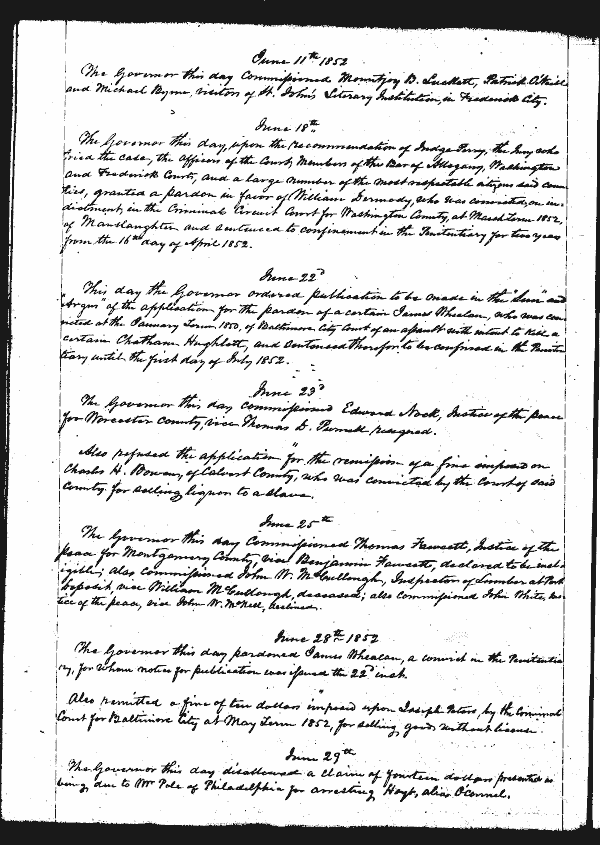 June 11th 1852
The Governor this day commissioned Mountjoy B. Luckett, Patrick O'Neill
and Michael Byrne, visitors of St. John's Literary Institution, in Frederick City.
June 18th
The Governor this day, upon the recommendation of Judge Perry, the Jury who
tried the case, the officers of the Court, Members of the Bar of Allegany, Washington
and Frederick Courts, and a large number of the most respectable citizens said coun-
ties, granted a pardon in favor of William Dermody, who was convicted, on in-
dictment, in the Criminal Circuit Court for Washington County, at March term 1852,
of Manslaughter and sentenced to confinement in the Penitentiary for two years
from the 16th day of April 1852.
June 22d
This day the Governor ordered publication to be made in the "Sun" and
"Argus" of the application for the pardon of a certain James Whealan, who was con-
victed at the January Term 1850, of Baltimore City Court of an assault with intent to kill a
certain Chatham Hughlett, and sentenced therefor to be confined in the Peniten-
tiary until the first day of July 1852.
June 23d
The Governor this day commissioned Edward Nock, Justice of the peace
for Worcester County, vice Thomas D. Purnell resigned.
Also refused the application for the remission of a fine imposed on
Charles H. Bowen, of Calvert County, who was convicted by the Court of said
County, for selling liquor to a slave.
June 25th
The Governor this day Commissioned Thomas Fawcett, Justice of the
peace for Montgomery County, vice Benjamin Fawcett, declared to be inel-
igible; also commissioned John W. McCullough, Inspector of Lumber at Port
Deposit, vice William McCullough, deceased; also commissioned John White, Jus-
tice of the peace, vice John W. McNeal, declined.
June 28th 1852
The Governor this day pardoned James Whealan, a convict in the Penitentia-
ry, for whom notice for publication was issued the 22d inst.
Also remitted a fine of ten dollars imposed upon Joseph Peters, by the Criminal
Court for Baltimore City at May Term 1852, for selling goods without license.
June 29th
The Governor this day disallowed a claim of fourteen dollars presented as
being due to Wm Pole of Philadelphia for arresting Hoyt, alias O'Connel.